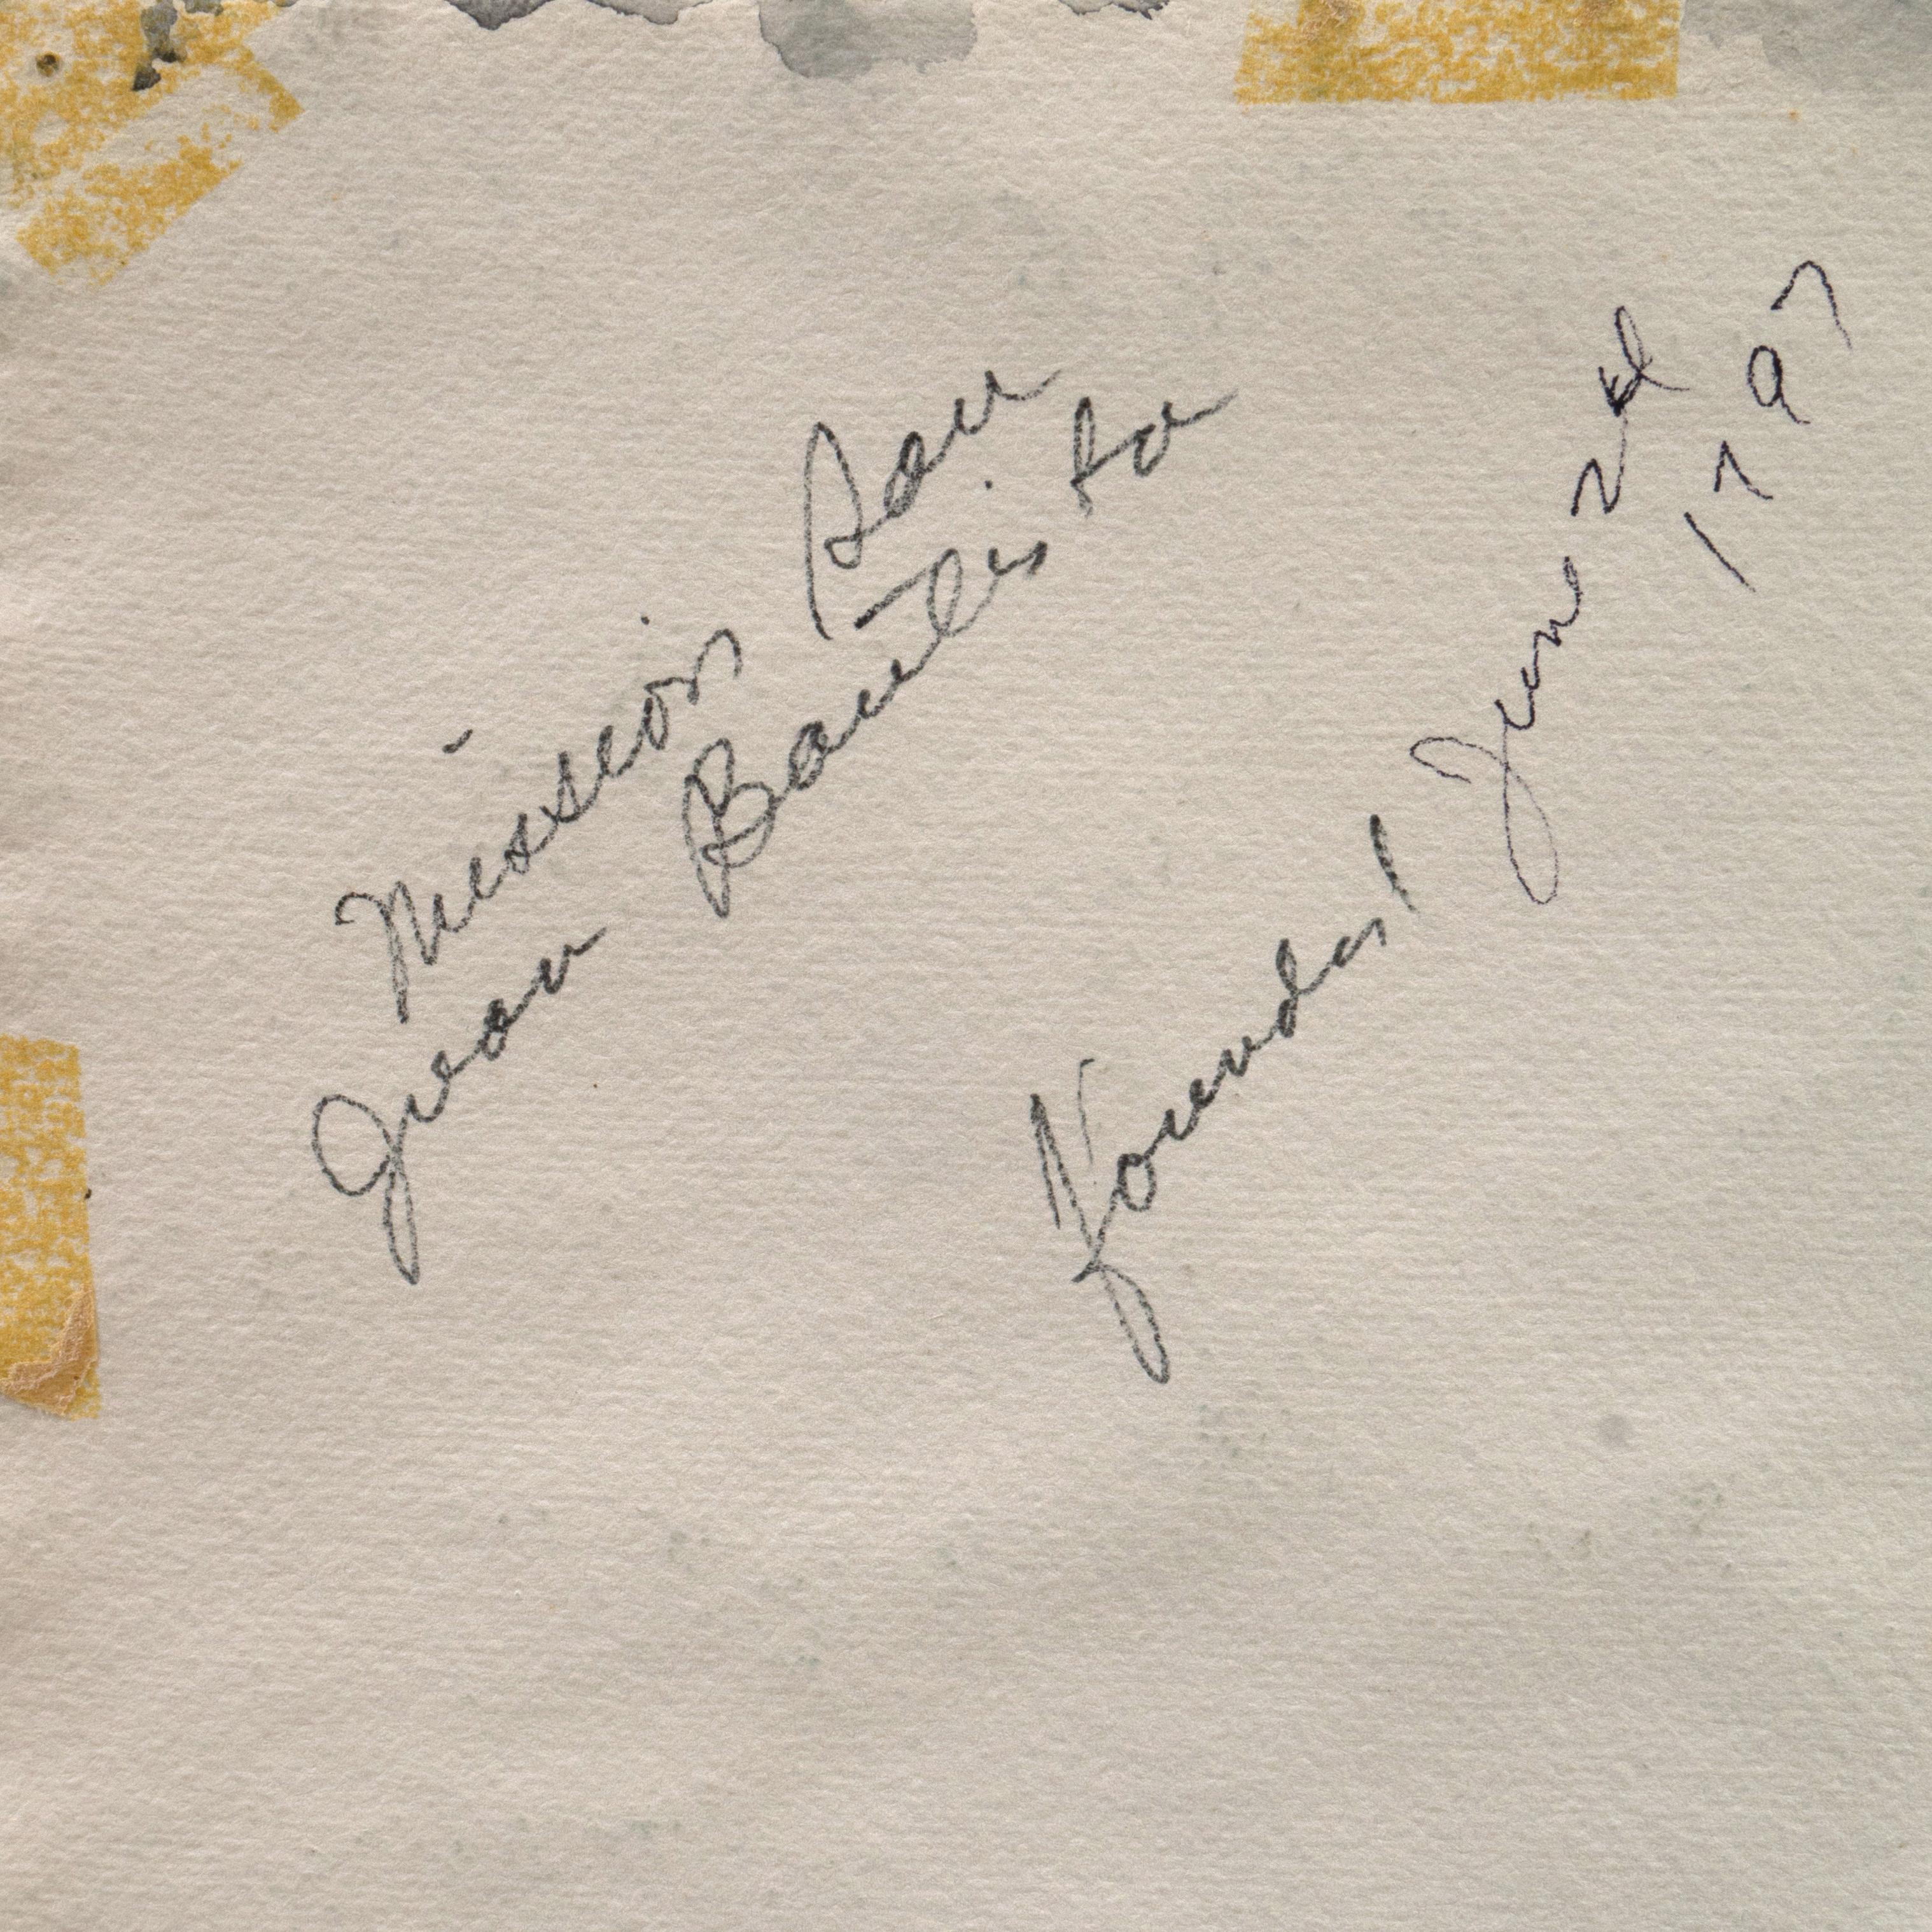 Mission San
Juan Bautista
Founded June 24
1797